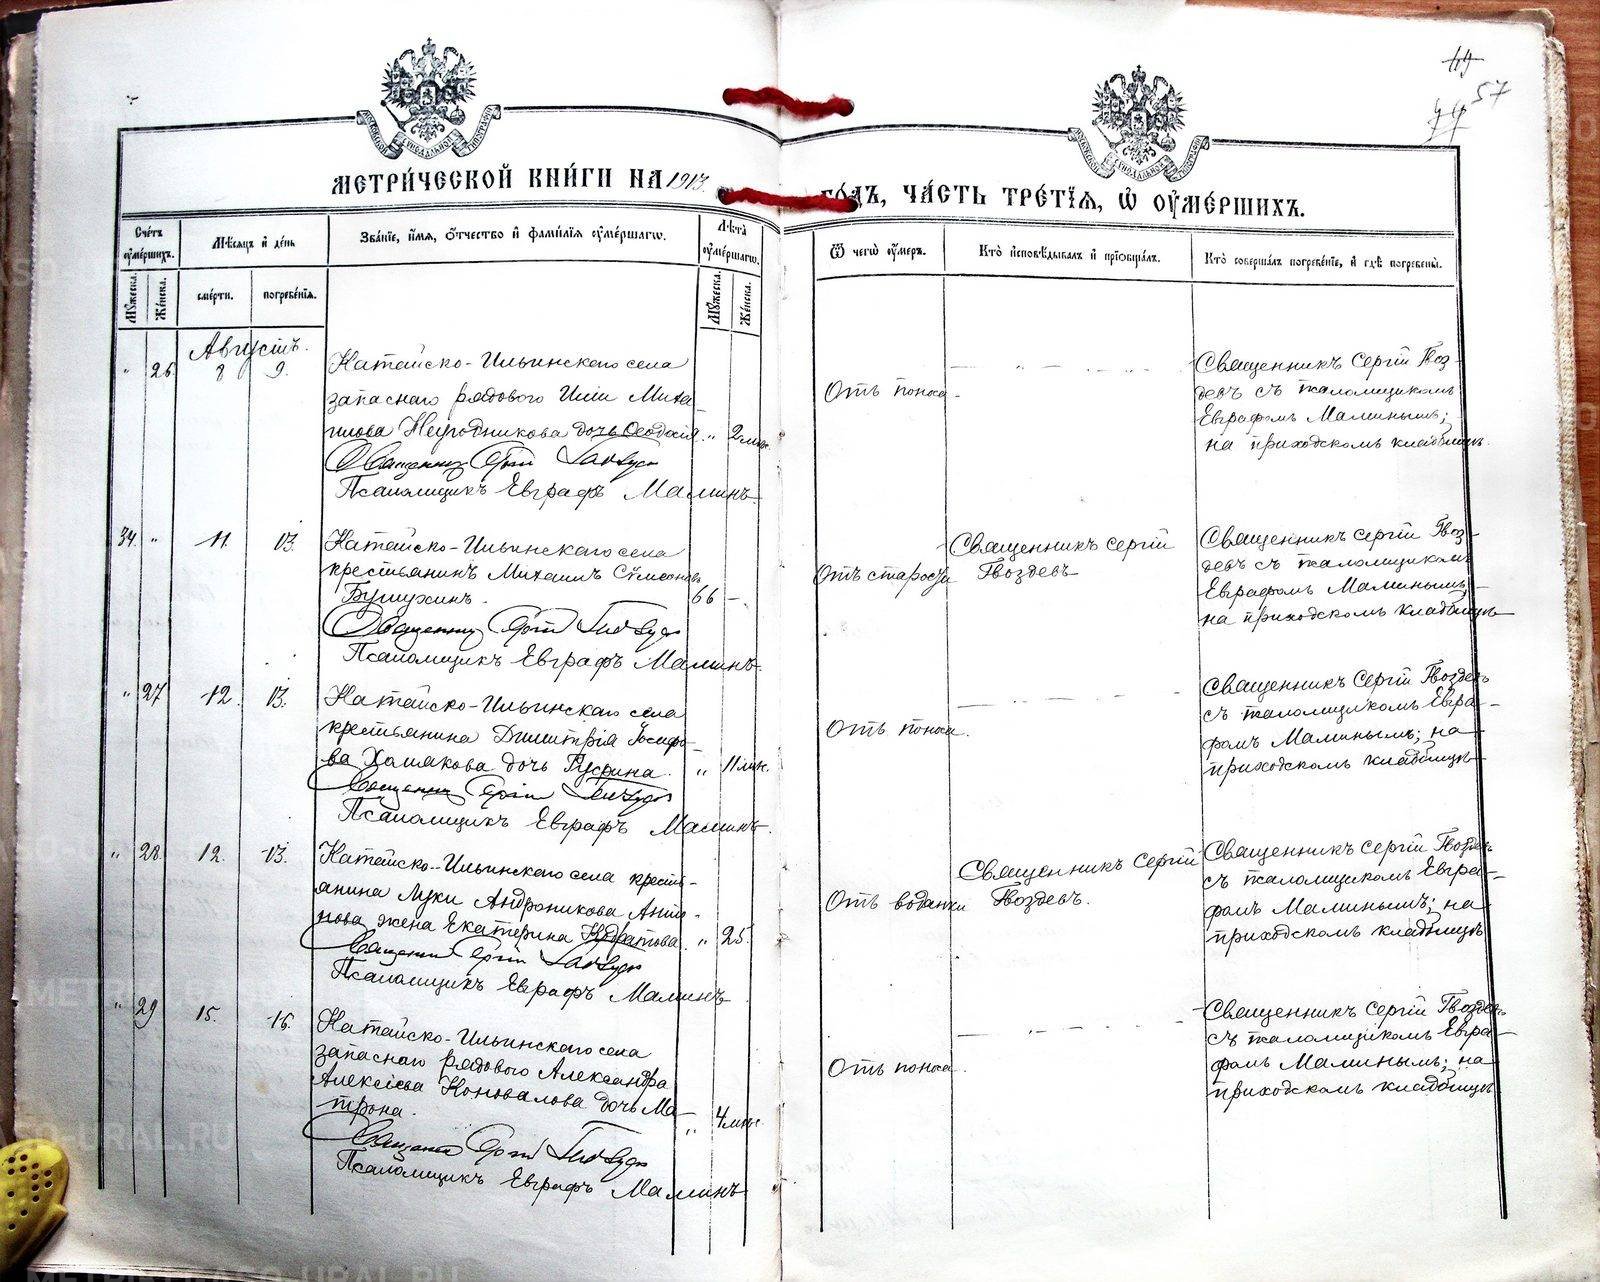 49
44 57
МЕТРИЧЕСКОЙ КНИГИ НА 1913 ГОДЪ, ЧАСТЬ ТРЕТІЯ, Ѿ ОУМЕРШИХЪ.
Счетъ оумершихъ.
Мѣсяцъ и день
Званіе, имя, отчество и фамилія оумершагѡ.
Лѣта оумершагѡ.
Ѿ чегѡ оумеръ.
Кто исповѣдывалъ и пріобщалъ.
Кто совершалъ погребеніе, и гдѣ погребены.
Мужеска.
Женска.
смерти.
погребенія.
Мужеска.
Женска.
Августъ.
" 26 8 9.
Катайско-Ильинскаго села
запаснаго рядового Иліи Миха-
илова Неуродникова дочь Ѳеодосія " 2 мѣс.
Священникъ Сергій Гвоздевъ
Псаломщикъ Евграфъ Малинъ
Отъ поноса
Священникъ Сергій Гвоз-
девъ съ псаломщикомъ
Евграфомъ Малинымъ;
на приходскомъ кладбищѣ.
34. " 11. 13.
Катайско-Ильинскаго села
крестьянинъ Михаилъ Сѵмеоновъ
Бушухинъ. 66 –
Священникъ Сергій Гвоздевъ
Псаломщикъ Евграфъ Малинъ.
Отъ старости
Священникъ Сергій
Гвоздевъ
Священникъ Сергій Гвоз-
девъ съ псаломщикомъ
Евграфомъ Малинымъ;
на приходскомъ кладбищѣ
" 27 12. 13.
Катайско-Ильинскаго села
крестьянина Димитрія Іосифо-
ва Хомякова дочь " 11 мѣс.
Священникъ Сергій Гвоздевъ
Псаломщикъ Евграфъ Малинъ.
Отъ поноса.
Священникъ Сергій Гвоздевъ
съ псаломщикомъ Евгра-
фомъ Малинымъ; на
приходскомъ кладбищѣ
" 28. 12. 13.
Катайско-Ильинскаго села кресть-
янина Луки Андроникова Анти-
пова жена Екатерина Кодратова. " 25.
Священникъ Сергій Гвоздевъ
Псаломщикъ Евграфъ Малинъ
Отъ водянки
Священникъ Сергій
Гвоздевъ.
Священникъ Сергій Гвоздевъ
съ псаломщикомъ Евгра-
фомъ Малинымъ; на
приходскомъ кладбищѣ
" 29 15. 16.
Катайско-Ильинскаго села
запаснаго рядового Александра
Алексіева Коновалова дочь Ма-
трона. " 4 мѣс.
Священникъ Сергій Гвоздевъ
Псаломщикъ Евграфъ Малинъ
Отъ поноса.
Священникъ Сергій Гвоздевъ
съ псаломщикомъ Евгра-
фомъ Малинымъ; на
приходскомъ кладбищѣ